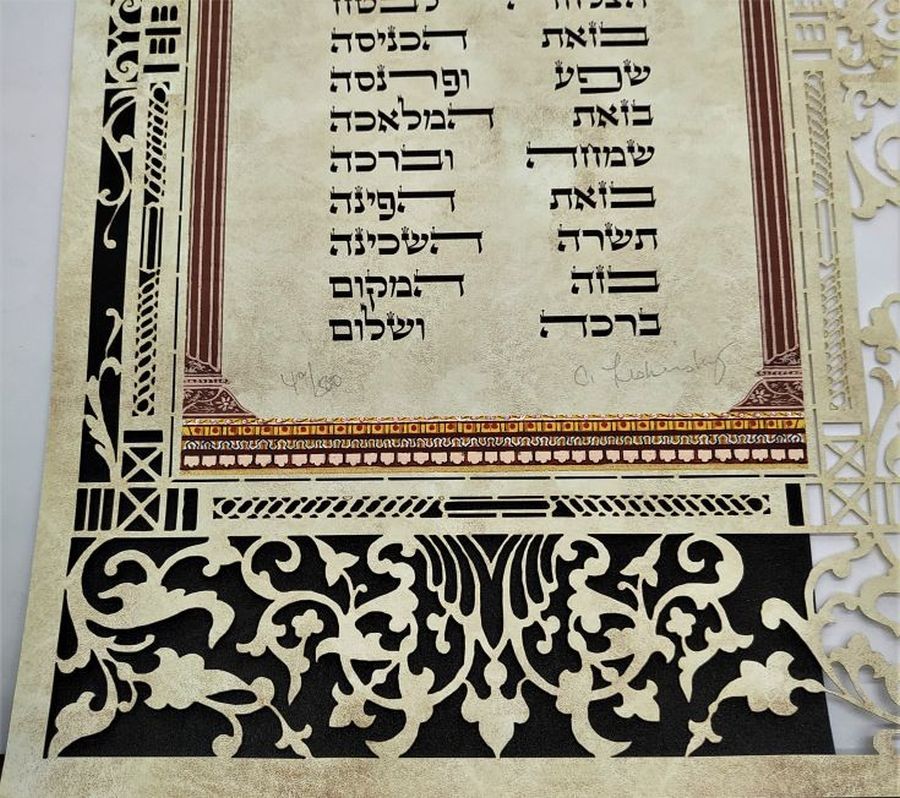 בזאת הכניסה
שפע ופרנסה
בזאת המלאכה
שמחה וברכה
בזאת הפינה
תשרה השכינה
בזה המקום
ברכה ושלום